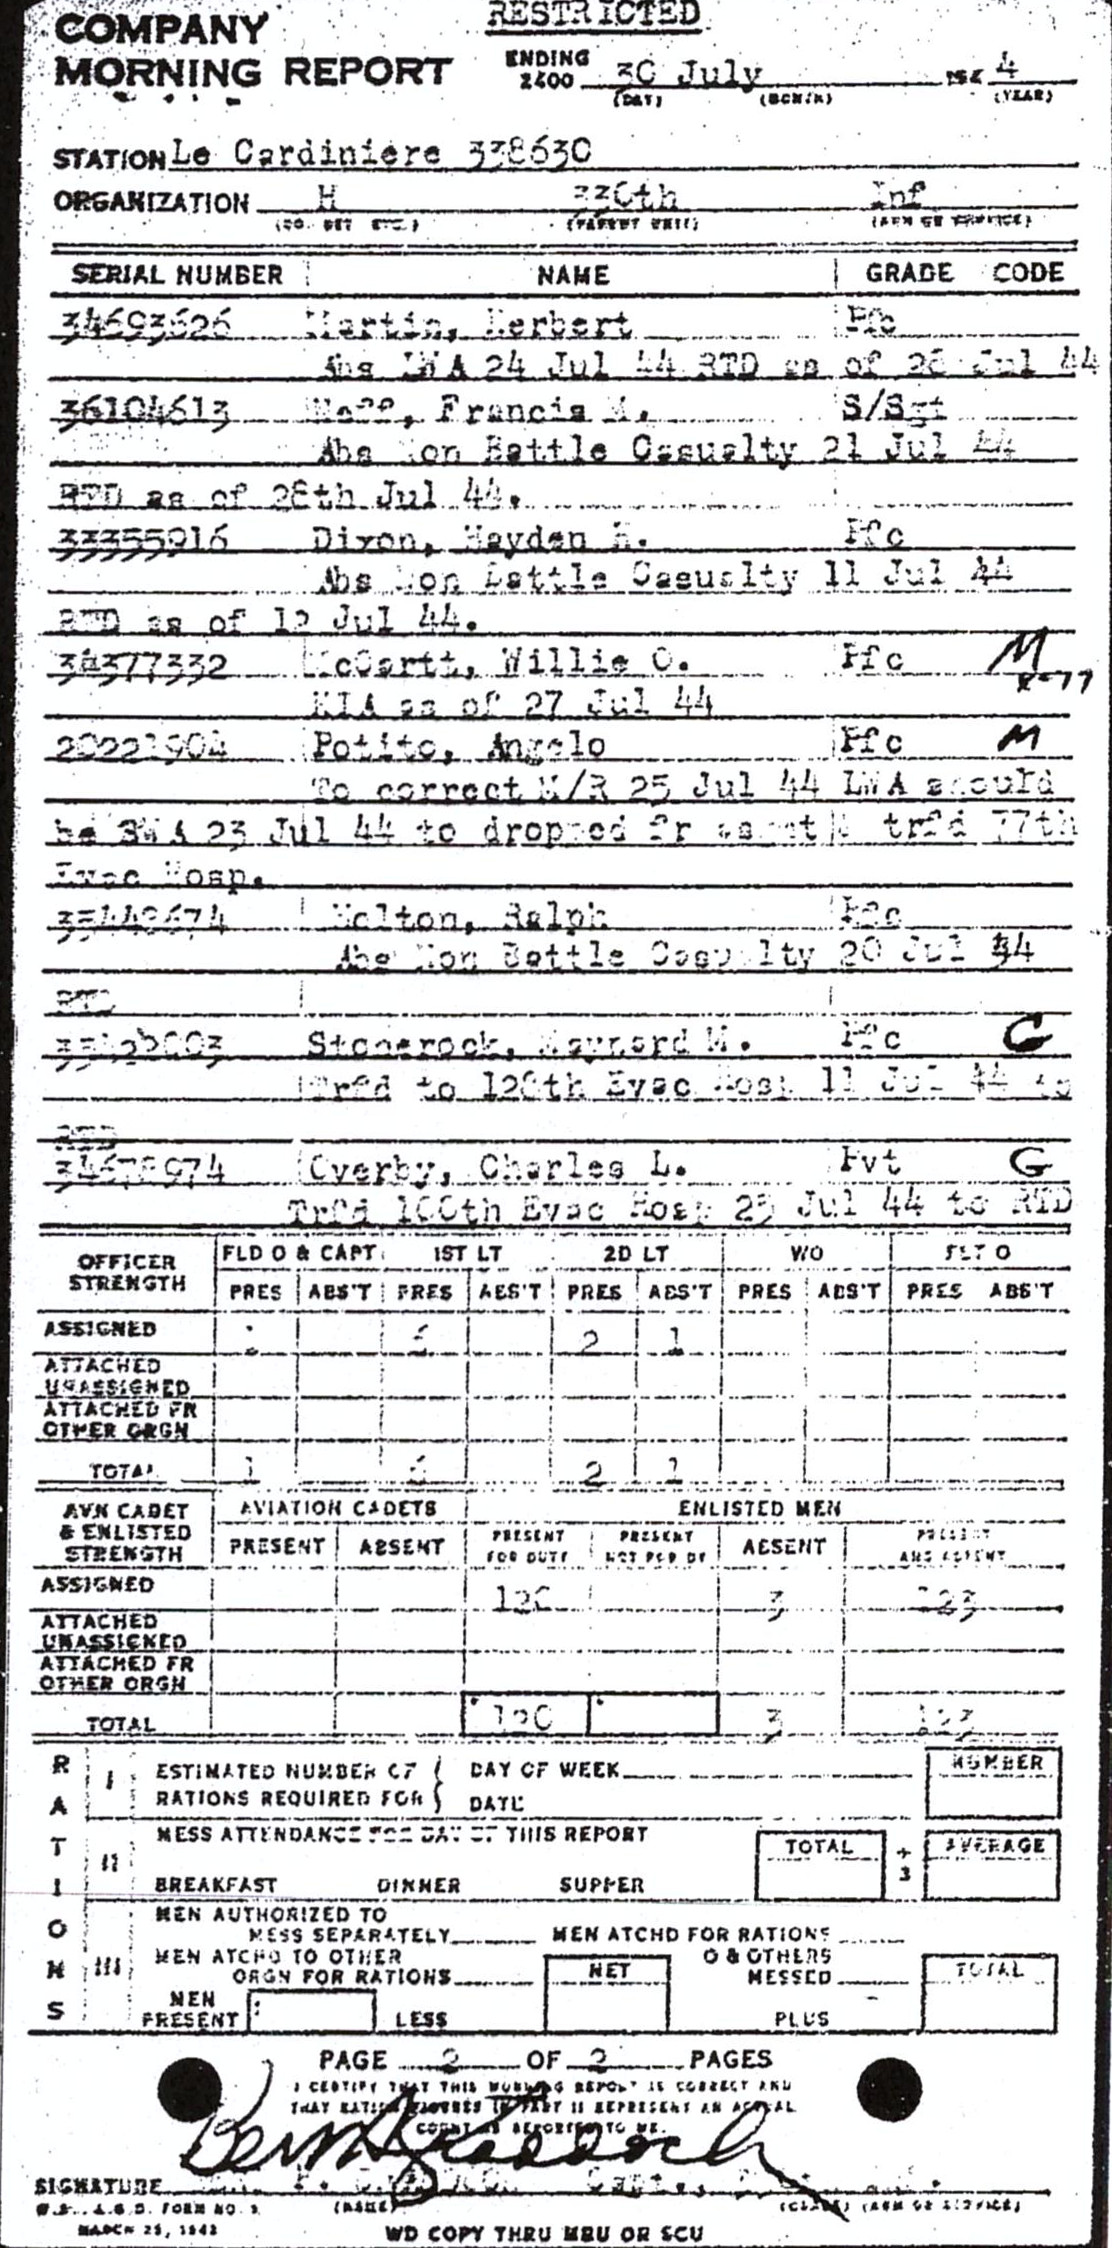 RESTRICTED
COMPANY
MORNING REPORT
ENDING 2400 30 July 194 4
(DAY) (MONTH) (YEAR)
STATION Le Cardiniere 338630
ORGANIZATION H 330th Inf
(CO. DET ETC.) (PARENT UNIT) (ARM OR SERVICE)
SERIAL NUMBER NAME GRADE CODE
34693626 Martin, Herbert Pfc
Abs LWA 24 Jul 44 RTD as of 28 Jul 44
36104613 Neff, Francis M. S/Sgt
Abs Non Battle Casualty 21 Jul 44
RTD as of 28th Jul 44.
33355916 Dixon, Hayden H. Pfc
Abs Non Battle Casualty 11 Jul 44
RTD as of 12 Jul 44.
34377332 McCartt, Willie O. Pfc M
K-77
KIA as of 27 Jul 44
20221904 Potito, Angelo Pfc M
To correct M/R 25 Jul 44 LWA should
be SWA 23 Jul 44 to dropped fr asmt & trfd 77th
Evac Hosp.
35449674 Molton, Ralph Pfc
Abs Non Battle Casualty 20 Jul 44
RTD
Stonerock, Maynard M. Pfc G
Trfd to 128th Evac Hosp 11 Jul 44 to
RTD
34678974 Overby, Charles L. Pvt G
Trfd 100th Evac Hosp 25 Jul 44 to RTD
OFFICER STRENGTH FLD O & CAPT 1ST LT 2D LT WO FLT O
PRES ABS'T PRES ABS'T PRES ABS'T PRES ABS'T PRES ABS'T
ASSIGNED 2 1
ATTACHED UNASSIGNED
ATTACHED FR OTHER ORGN
TOTAL 1 2 1
AVN CADET & ENLISTED STRENGTH AVIATION CADETS ENLISTED MEN
PRESENT ABSENT PRESENT FOR DUTY PRESENT NOT FOR DY ABSENT PRESENT AND ABSENT
ASSIGNED 120 3 123
ATTACHED UNASSIGNED
ATTACHED FR OTHER ORGN
TOTAL 120 3 123
RATIONS
I ESTIMATED NUMBER OF RATIONS REQUIRED FOR DAY OF WEEK DATE NUMBER
II MESS ATTENDANCE FOR DAY OF THIS REPORT TOTAL ÷ 3 AVERAGE
BREAKFAST DINNER SUPPER
III MEN AUTHORIZED TO MESS SEPARATELY MEN ATCHD FOR RATIONS
MEN ATCHD TO OTHER ORGN FOR RATIONS NET O & OTHERS MESSED TOTAL
MEN PRESENT LESS PLUS
PAGE 2 OF 2 PAGES
I CERTIFY THAT THIS MORNING REPORT IS CORRECT AND
THAT RATION FIGURES IN PART II REPRESENT AN ACTUAL
COUNT AS REPORTED TO ME.
SIGNATURE Capt.,
(NAME) (GRADE) (ARM OR SERVICE)
W.D., A.G.O. FORM NO. 1
MARCH 25, 1943
WD COPY THRU MRU OR SCU